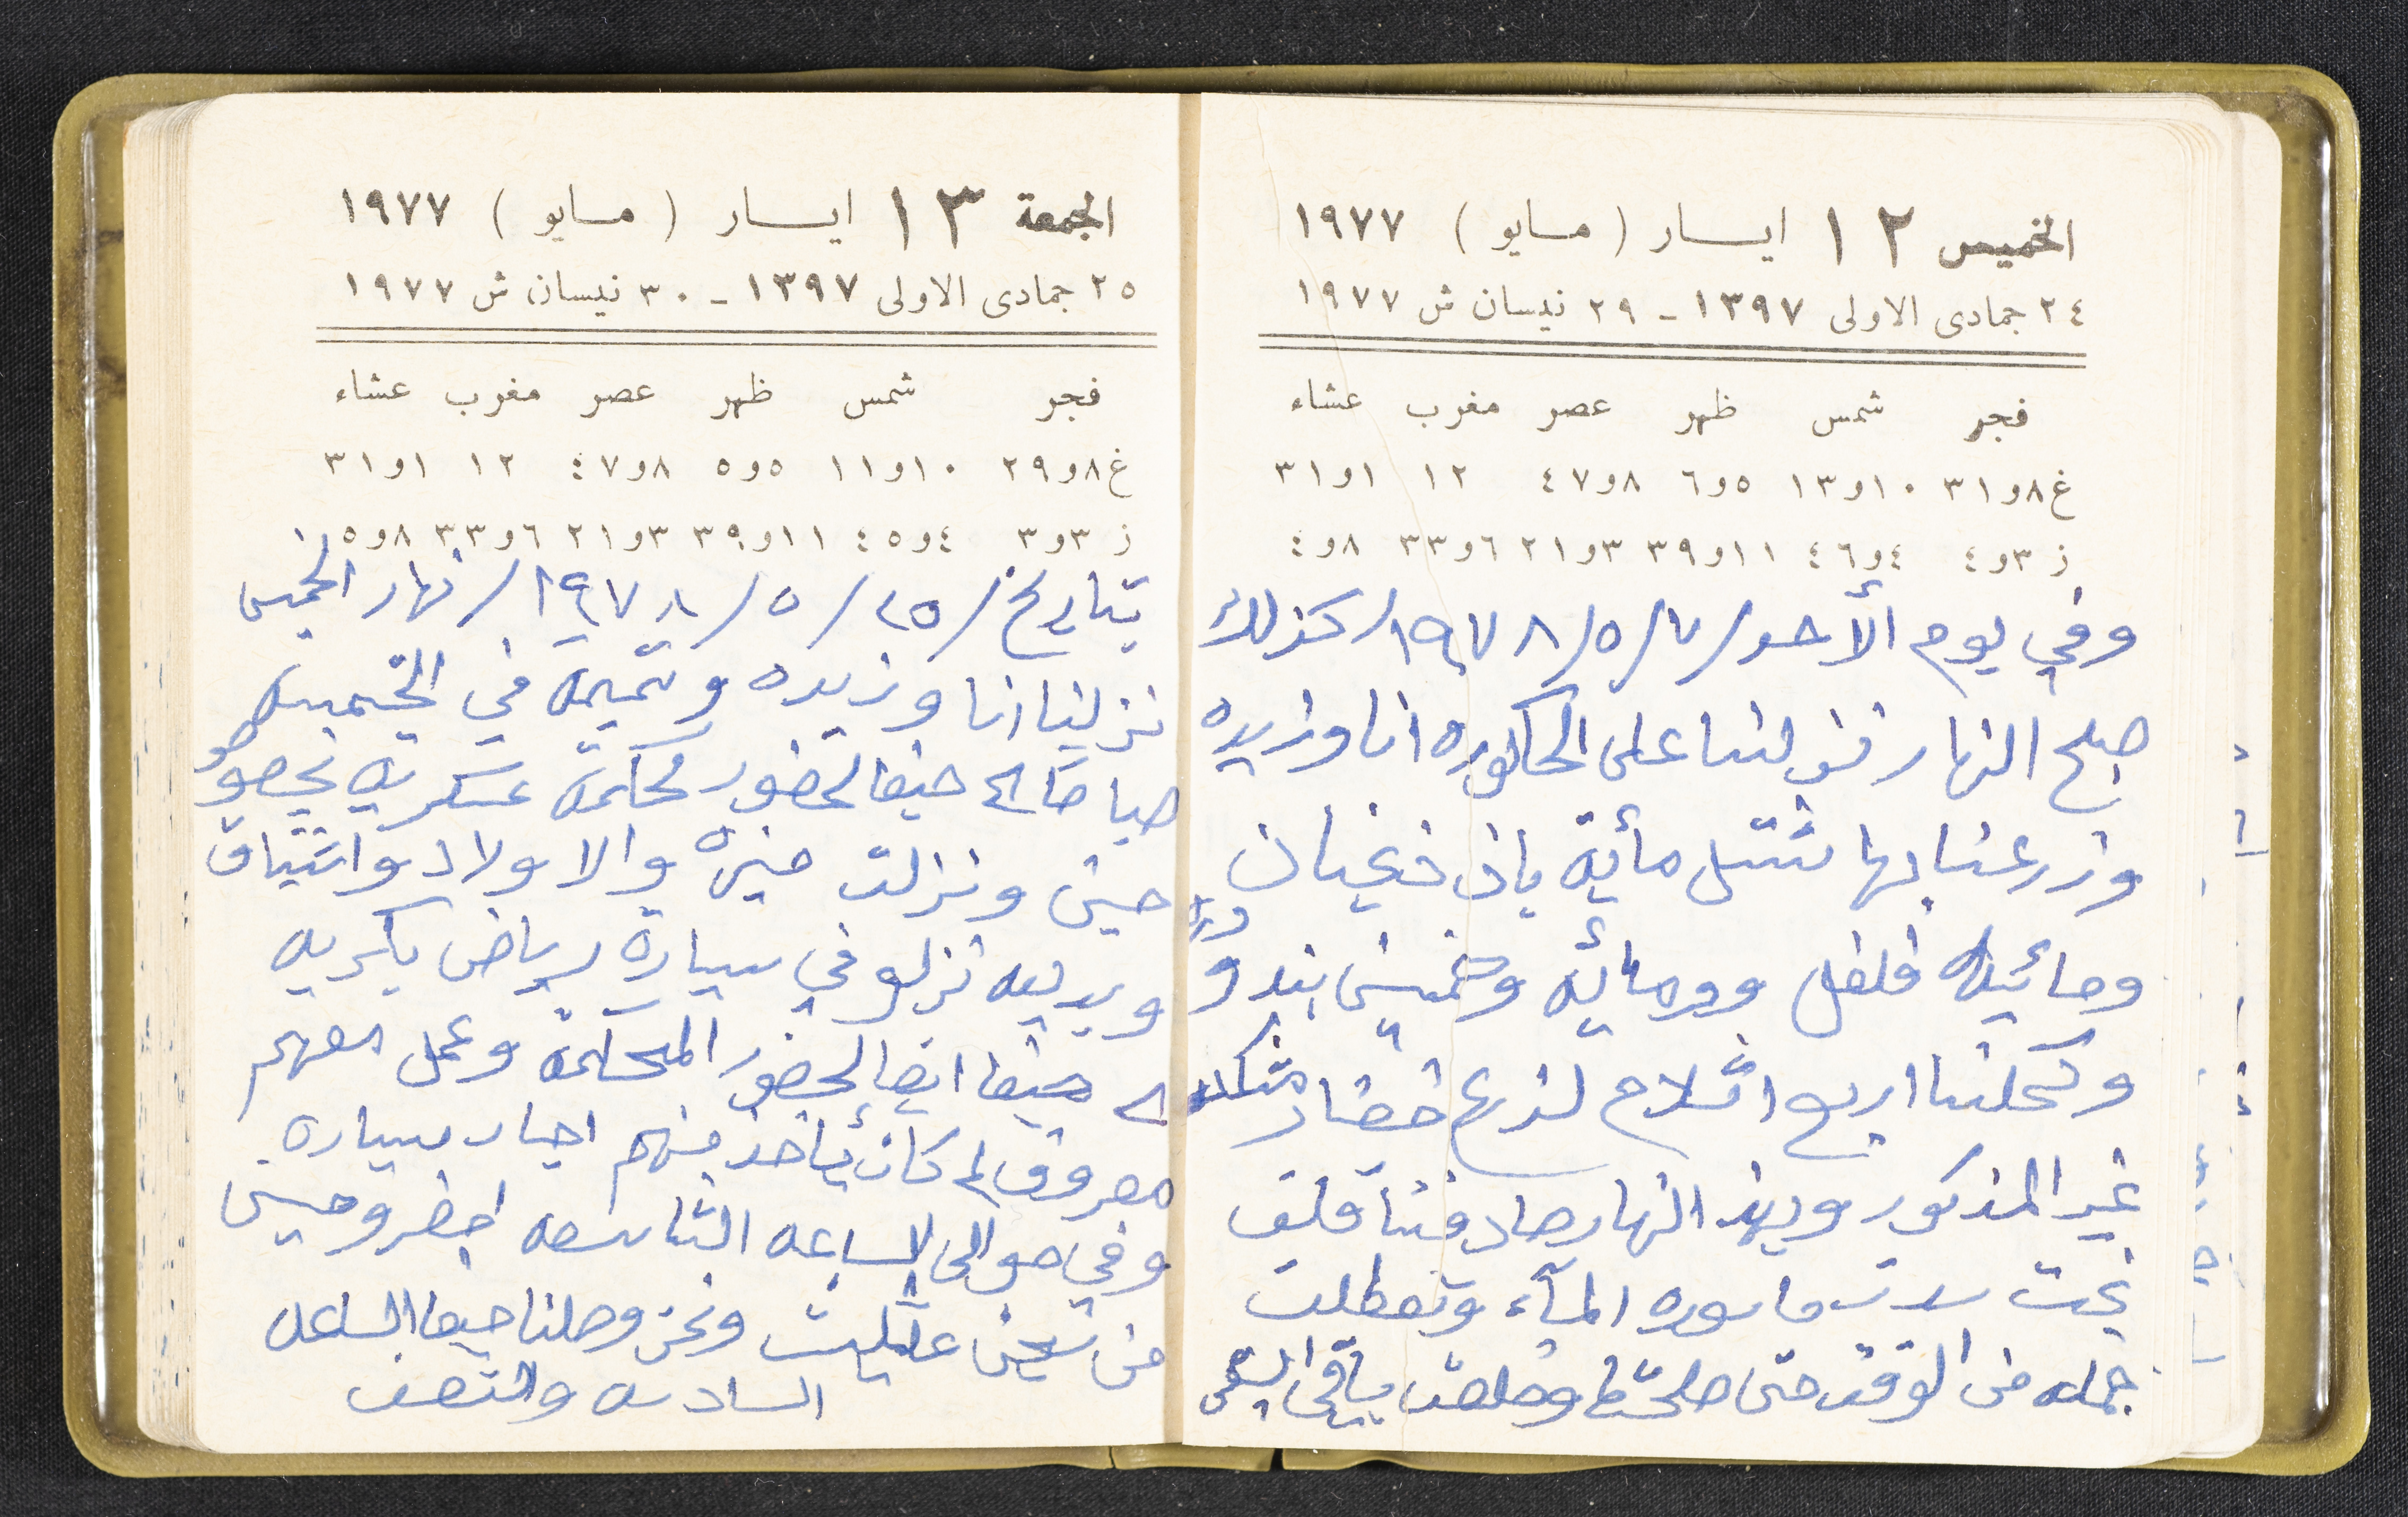 الخميس ١٢ ايسار (مسايو) ١٩٧٧
٢٤ جمادى الاولى ١٣٩٧ - ٢٩ نيسان ش ١٩٧٧
فجر شمس ظهر عصر مغرب عشاء
غ ٨و٣١ ١٠و١٣ ٥و٦ ٨و٤٧ ١٢ ١و٣١
ز ٣و٤ ٤و٤٦ ١١و٣٩ ٣و٢١ ٦و٣٣ ٨و٤
وفي يوم الأحد/٧/٥/١٩٧٨/كذلك
صبح النهار نزلنا على الحاكوره انا وزيده
وزرعنا بها شتل مأية باذنجان
ومائية فلفل ومائيه وخمسين بندوره
وكحلنا اربع اثلام لزرع خضار
غير المذكور وبهذ النهار صادفنا
تحت ماسورة المآء وتعطلت
جمله من الوقت حتى
الجمعة ١٣ ايسار (مسايو) ١٩٧٧
٢٥ جمادى الاولى ١٣٩٧ - ٣٠ نيسان ش ١٩٧٧
فجر شمس ظهر عصر مغرب عشاء
غ ٨و٢٩ ١٠و١١ ٥و٥ ٨و٤٧ ١٢ ١و٣١
ز ٣و٣ ٤و٤٥ ١١و٣٩ ٣و٢١ ٦و٣٣ ٨و٥
بتاريخ/٢٥/٥/١٩٧٨/نهار الخميس
نزلنا انا وزيده وتميمه في
صباحا الى حيفا لحضور محاكمة عسكريه
ونزلت والاولاد واشتياق
نزلو في سيارة رياض بكريه
حيفا ايضا لحضور المحاكمة وعمل معهم
معروف لم كان يأخذ منهم اجار سياره
وفي حوالى الساعه التاسعه احضرو حسين
من سجن عتليت ونحن وصلنا حيفا الساعه
السادسه والنصف